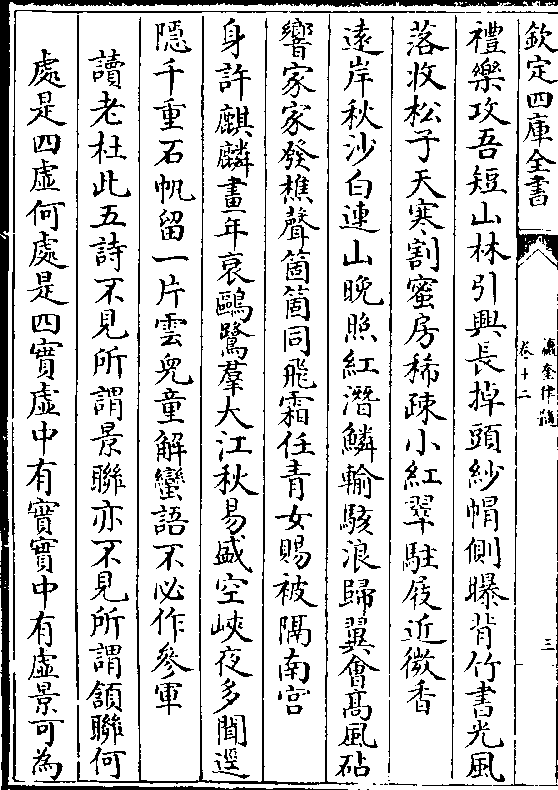 欽定四庫全書
瀛奎律髓
卷十二
三
禮樂攻吾短山林引興長掉頭紗帽側曝背竹書光風
落收松子天寒割蜜房稀疎小紅翠駐屐近微香
遠岸秋沙白連山晚照紅潛鱗輸駭浪歸翼會髙風砧
響家家發樵聲箇箇同飛霜任青女賜被隔南宫
身許麒麟畫年衰鷗鷺羣大江秋易盛空峽夜多聞逕
隠千重石帆留一片雲兒童解蠻語不必作參軍
讀老杜此五詩不見所謂景聯亦不見所謂頷聯何
處是四虛何處是四實虛中有實實中有虛景可為